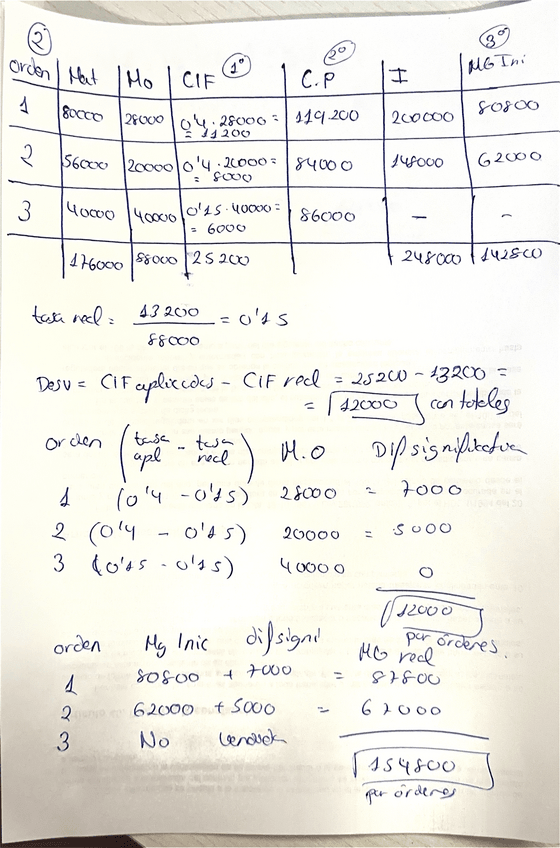 2
1º 2º 3º
Orden Mat Mo CIF C.P I MG Ini
1 80000 28000 0'4 · 28000 = 119.200 200000 80800
= 11200
2 56000 20000 0'4 · 20000 = 84000 148000 62000
= 8000
3 40000 40000 0'15 · 40000 = 86000 — -
= 6000
176000 88000 25200 248000 142800
tasa real = 13200 / 88000 = 0'15
Desv = CIF aplicados - CIF real = 25200 - 13200 =
= 12000 con totales
orden (tasa apl - tasa real) M.O Dif significativa
1 (0'4 - 0'15) 28000 = 7000
2 (0'4 - 0'15) 20000 = 5000
3 (0'15 - 0'15) 40000 0
12000
por órdenes.
orden Mg Inic dif signi MG real
1 80800 + 7000 = 87800
2 62000 + 5000 = 67000
3 No vendida
154800
por órdenes